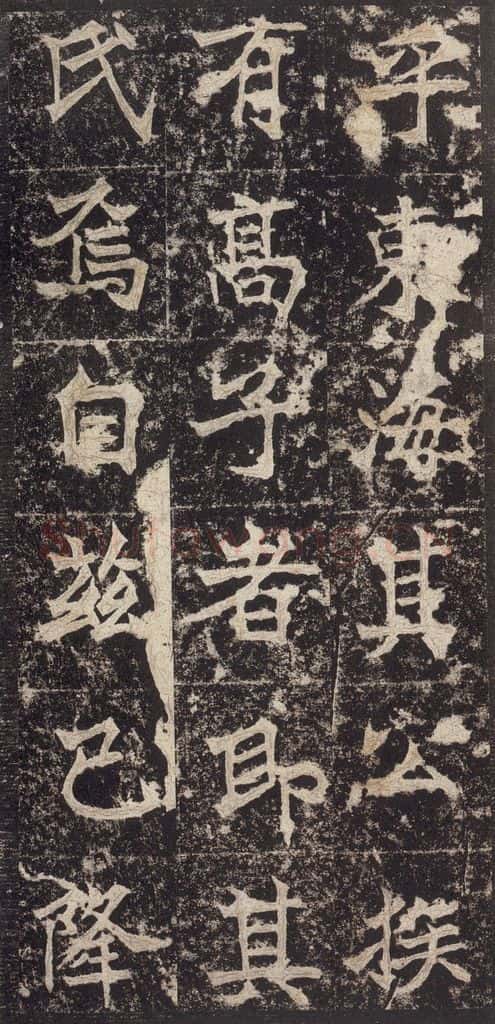 乎東海其公族
有髙子者即其
氏焉自兹已降